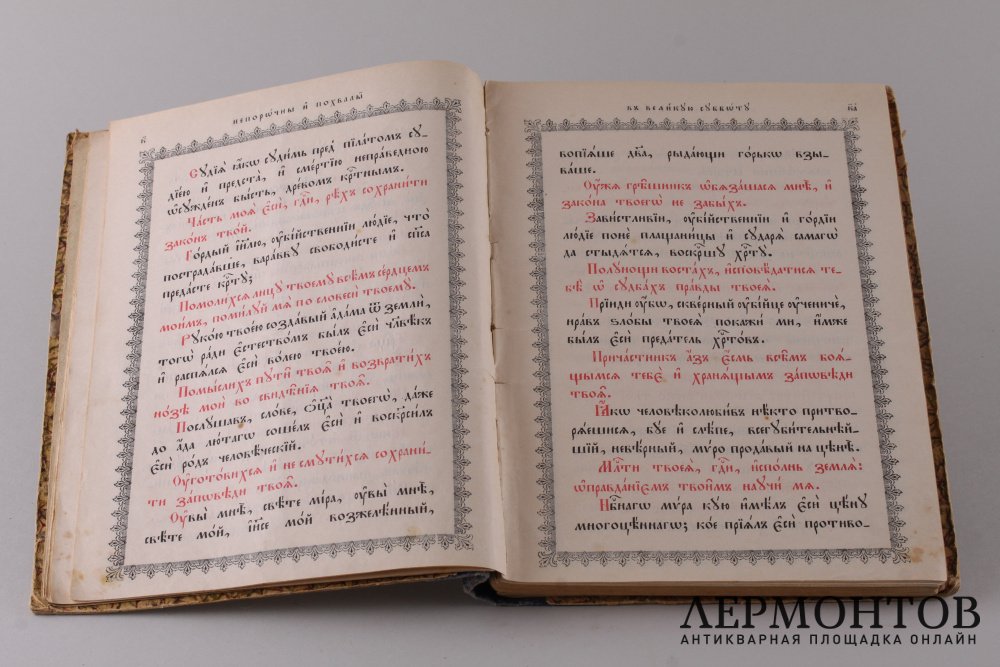 к
непорѡ́чны и҆ похвалы̀
Сꙋдїю̀ ꙗ҆́кѡ сꙋди́мь пред̾ пїла́томъ сꙋ-
дїе́ю и҆ предста̀, и҆ сме́ртїю непра́ведною
ѡ҆сꙋжде́нъ бы́сть, дре́вомъ крⷭ҇тнымъ.
Ча́сть моѧ̀ є҆сѝ, гдⷭ҇и, рѣ́хъ сохрани́ти
зако́нъ тво́й.
Го́рдый і҆и҃лю, ᲂу҆бі́йственнїи лю́дїе, что̀
пострада́вше, вара́ввꙋ свободи́сте и҆ спⷭ҇са
преда́сте крⷭ҇тꙋ̀;
Помоли́хсѧ лицꙋ̀ твоемꙋ̀ всѣ́мъ се́рдцемъ
мои́мъ, поми́лꙋй мѧ̀ по словесѝ твоемꙋ̀.
Рꙋко́ю твое́ю созда́вый а҆да́ма ѿ землѝ,
тогѡ̀ ра́ди є҆стество́мъ бы́лъ є҆сѝ человѣ́къ
и҆ распѧ́лсѧ є҆сѝ во́лею твое́ю.
Помы́слихъ пꙋти̑ твоѧ̑ и҆ возврати́хъ
но́зѣ моѝ во свидѣ̑нїѧ твоѧ̑.
Послꙋ́шавъ, сло́ве, ѻ҆ц҃а̀ твоегѡ̀, да́же
до а҆́да лю́тагѡ соше́лъ є҆сѝ и҆ воскр҃си́лъ
є҆сѝ ро́дъ человѣ́ческїй.
Оу҆гото́вихсѧ и҆ не смꙋти́хсѧ сохрани́-
ти за́пѡвѣди твоѧ̑.
Оу҆вы̀ мнѣ̀, свѣ́те мі́ра, ᲂу҆вы̀ мнѣ̀,
свѣ́те мо́й, і҆и҃се мо́й возжеле́нный,
въ вели́кꙋю сꙋббѡ́тꙋ
ка
вопїѧ́ше дв҃а, рыда́ющи го́рькѡ взы-
ва́ше.
Оу҆́жѧ грѣ̑шникъ ѡ҆бѧза́шасѧ мнѣ̀, и҆
зако́на твоегѡ̀ не забы́хъ.
Зави́стливїи, ᲂу҆бі́йственнїи и҆ го́рдїи
лю́дїе понѐ плащани́цы и҆ сꙋдарѧ̀ самагѡ̀
да стыдѧ́тсѧ, воскрⷭ҇шꙋ хрⷭ҇тꙋ̀.
Полꙋ́нощи воста́хъ, и҆сповѣ́датисѧ те-
бѣ̀ ѡ҆ сꙋдба́хъ пра́вды твоеѧ̀.
Прїидѝ ᲂу҆̀бѡ, скве́рный ᲂу҆бі́йце ᲂу҆ченичѐ,
нра́въ ѕло́бы твоеѧ̀ покажи́ ми, и҆́мже
бы́лъ є҆сѝ преда́тель хрⷭ҇то́въ.
Прича́стникъ а҆́зъ є҆́смь всѣ̑мъ боѧ́-
щымсѧ тебє̀ и҆ хранѧ́щымъ за́пѡвѣди
твоѧ̑.
Ꙗ҆́кѡ человѣколю́бивъ нѣ́кто притво-
рѧ́ешисѧ, бꙋ́е и҆ слѣ́пе, всегꙋби́тельнѣй-
шїй, невѣ́рный, мѵ́ро прода́вый на цѣнѣ̀.
Млⷭ҇ти твоеѧ̀, гдⷭ҇и, и҆спо́лнь землѧ̀:
ѡ҆правда́нїємъ твои̑мъ наꙋчи́ мѧ.
Нбⷭ҇нагѡ мѵ́ра кꙋ́ю и҆мѣ́лъ є҆сѝ цѣ́нꙋ
многоцѣ́ннагѡ; ко́е прїѧ́лъ є҆сѝ проти́во-
ЛЕРМОНТОВ
АНТИКВАРНАЯ ПЛОЩАДКА ОНЛАЙН